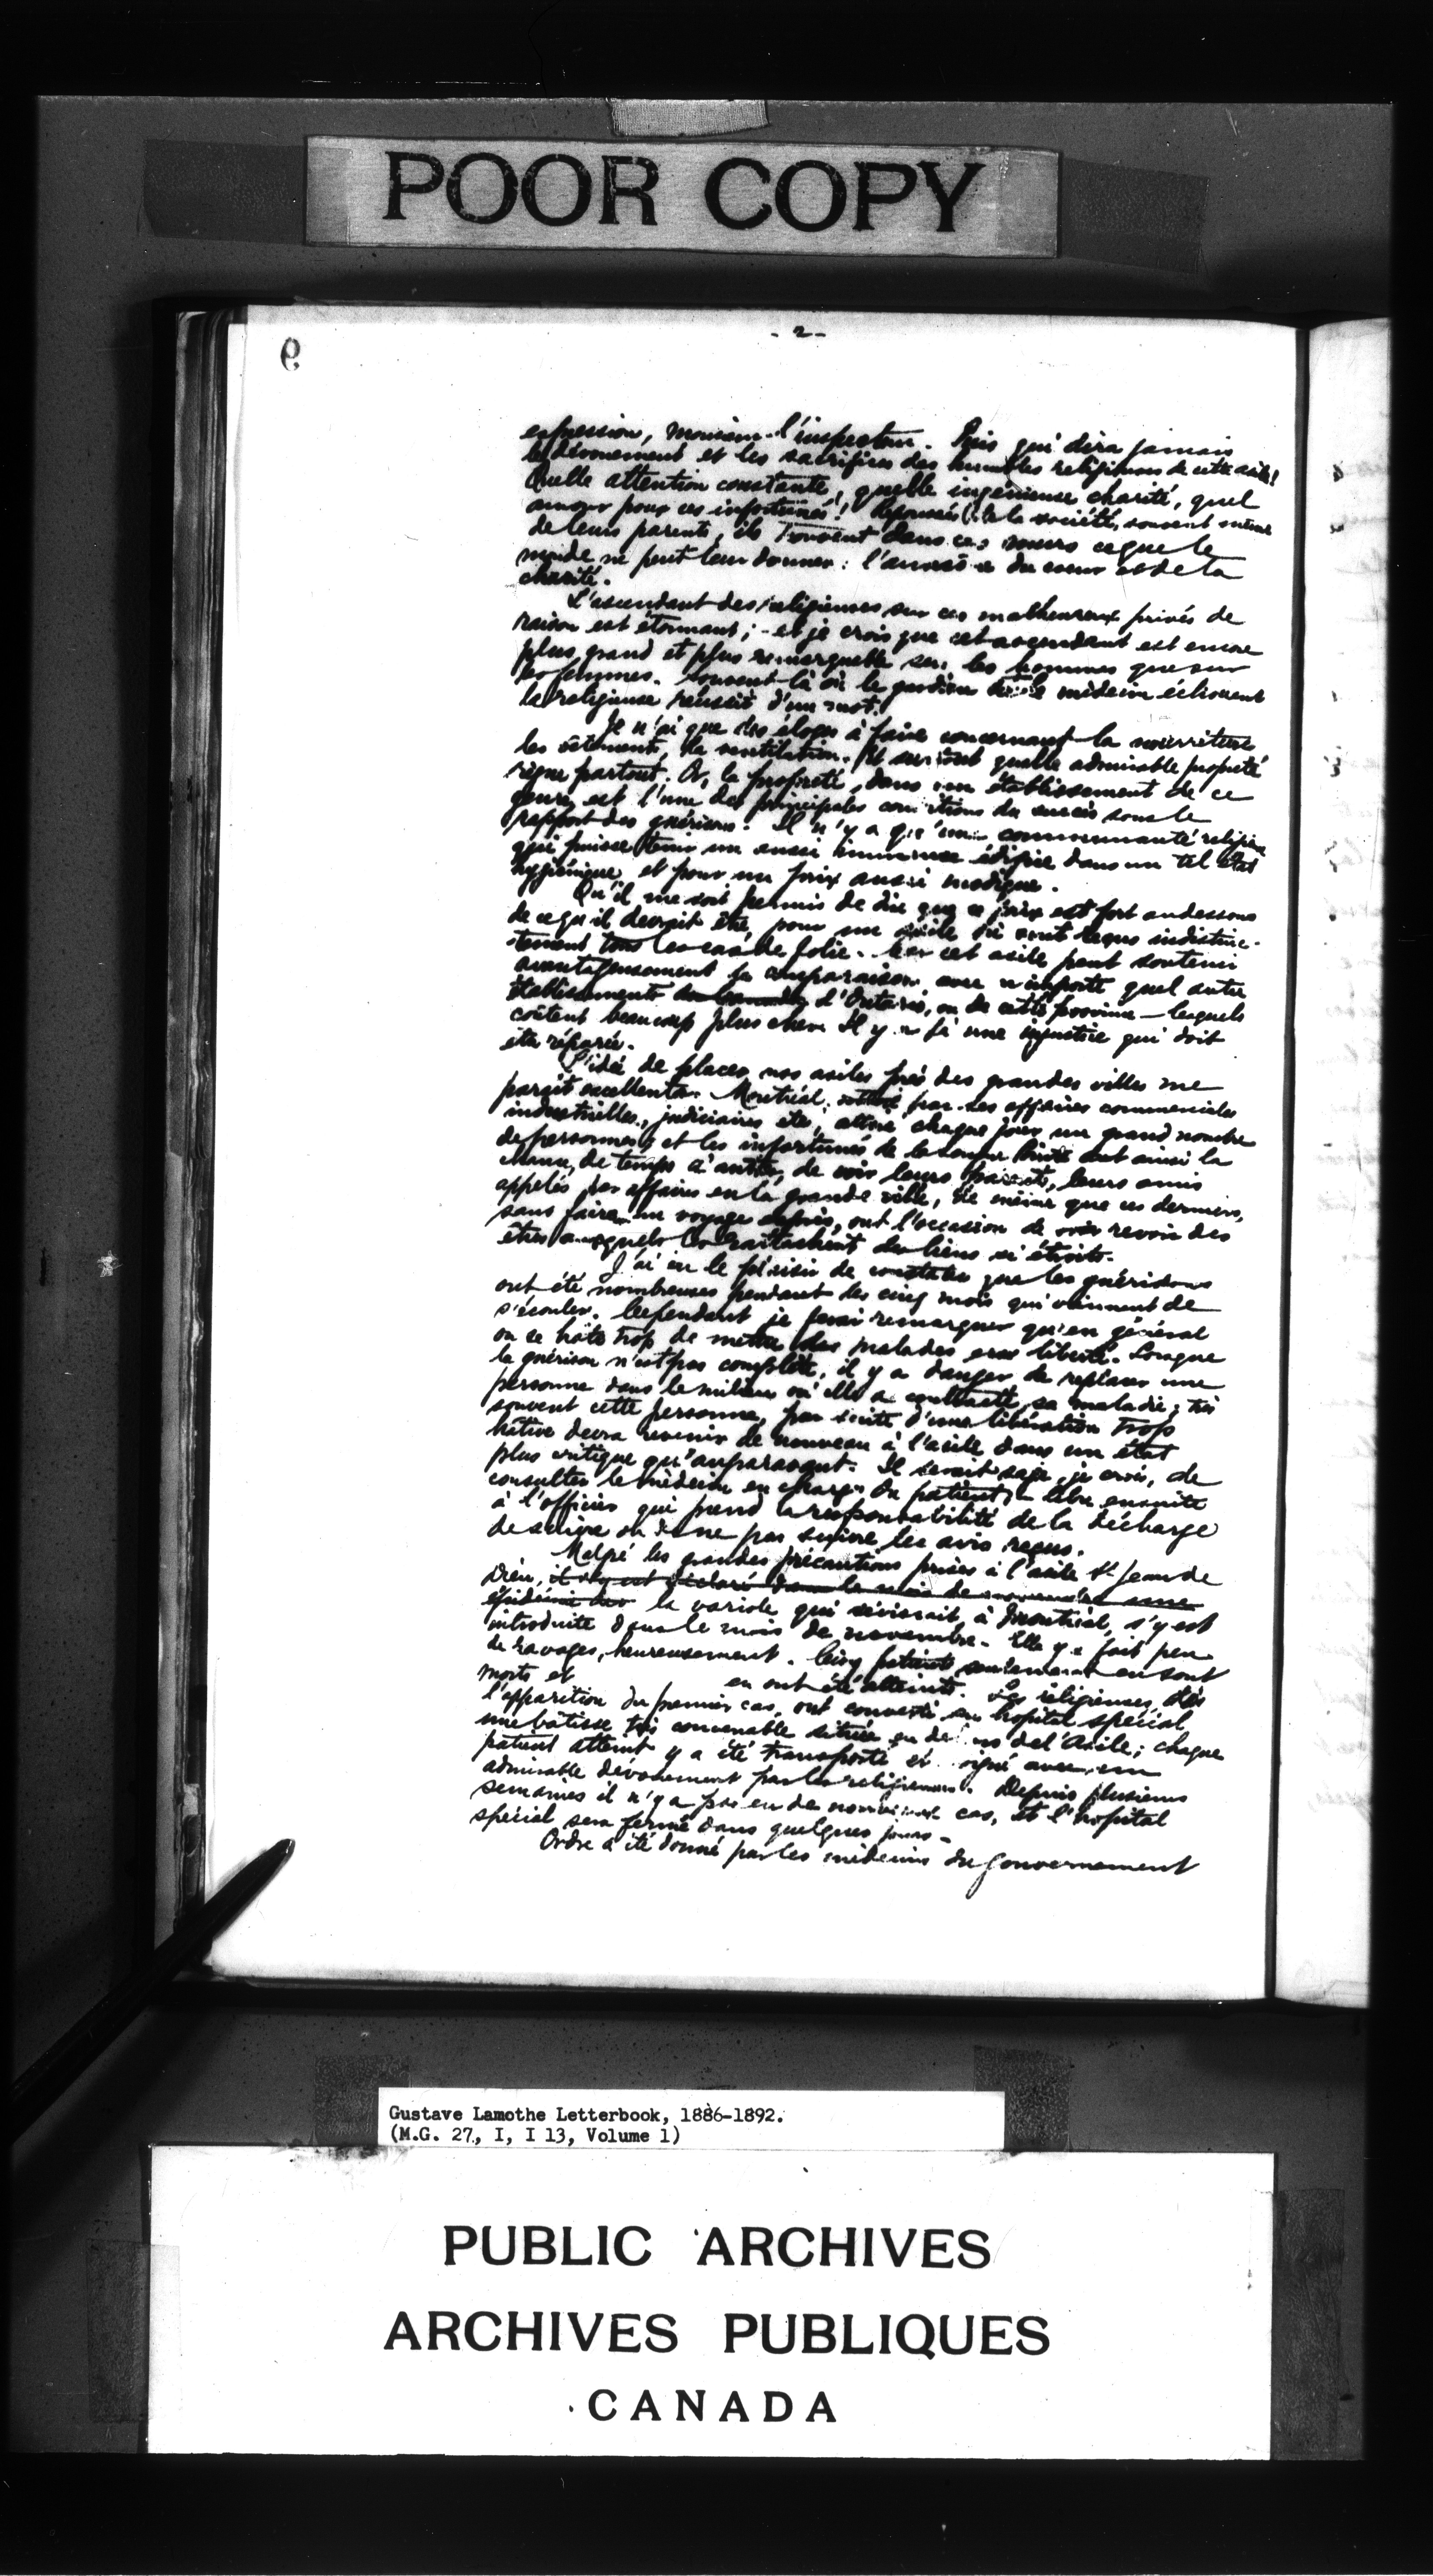 POOR COPY
9
- 2 -
expression, Monsieur l'inspecteur. Puis qui dira jamais
le dévouement et les sacrifices des humbles religieuses de cette asile!
Quelle attention constante, quelle ingénieuse charité, quel
amour pour ces infortunés! Repoussés de la société, souvent même
de leurs parents, ils trouvent dans ces soeurs ce que le
monde ne peut leur donner: l'amour du coeur et de la
charité.
L'ascendant des religieuses sur ces malheureux privés de
raison est étonnant; - et je crois que cet ascendant est encore
plus grand et plus remarquable sur les hommes que sur
les femmes. Souvent là où le gardien et le médecin échouent
la religieuse réussit d'un mot.
Je n'ai que des éloges à faire concernant la nourriture,
les vêtements, la ventilation. Et surtout quelle admirable propreté
règne partout. Or, la propreté, dans un établissement de ce
genre, est l'une des principales conditions du succès sous le
rapport des guérisons. Il n'y a qu'une communauté religieuse
qui puisse tenir un aussi immense édifice dans un tel état
hygiénique, et pour un prix aussi modique.
Qu'il me soit permis de dire que ce prix est fort au dessous
de ce qu'il devrait être, pour un asile où sont reçus indistinc-
tement tous les cas de folie. Car cet asile peut soutenir
avantageusement la comparaison avec n'importe quel autre
établissements d'Ontario, ou de cette province - lesquels
coûtent beaucoup plus cher. Il y a là une injustice qui doit
être réparée.
L'idée de placer nos asiles près des grandes villes me
paraît excellente. Montréal, par ses affaires commerciales
industrielles, judiciaires etc, attire chaque jour un grand nombre
de personnes, et les infortunés de la Longue Pointe ont ainsi la
chance, de temps à autre, de voir leurs parents, leurs amis
appelés par affaires en la grande ville, de même que ces derniers,
sans faire un voyage exprès, ont l'occasion de voir revoir des
êtres auxquels les rattachent des liens si étroits.
J'ai eu le plaisir de constater que les guérisons
ont été nombreuses pendant les cinq mois qui viennent de
s'écouler. Cependant je ferai remarquer qu'en général
on se hâte trop de mettre les malades en liberté. Lorsque
la guérison n'est pas complète, il y a danger de replacer une
personne dans le milieu où elle a contracté sa maladie; très
souvent cette personne, par suite d'une libération trop
hâtive devra revenir de nouveau à l'asile dans un état
plus critique qu'auparavant. Il serait sage, je crois, de
consulter le médecin en charge du patient, - libre ensuite
à l'officier qui prend la responsabilité de la décharge
de suivre ou de ne pas suivre les avis reçus.
Malgré les grandes précautions prises à l'asile St Jean de
Dieu, il s'y est déclaré dans le mois de novembre une
épidémie de la variole qui sévissait à Montréal, s'y est
introduite dans le mois de novembre. Elle y a fait peu
de ravages, heureusement. Cinq patients seulement en sont
morts et en ont été atteints. Les religieuses, dès
l'apparition du premier cas, ont converti en hopital spécial
une bâtisse très convenable située en dehors de l'Asile; chaque
patient atteint y a été transporté et soigné avec un
admirable dévouement par les religieuses. Depuis plusieurs
semaines il n'y a pas eu de nouveaux cas, et l'hopital
spécial sera fermé dans quelques jours.
Ordre a été donné par les médecins du gouvernement
Gustave Lamothe Letterbook, 1886-1892.
(M.G. 27, I, I 13, Volume 1)
PUBLIC ARCHIVES
ARCHIVES PUBLIQUES
CANADA